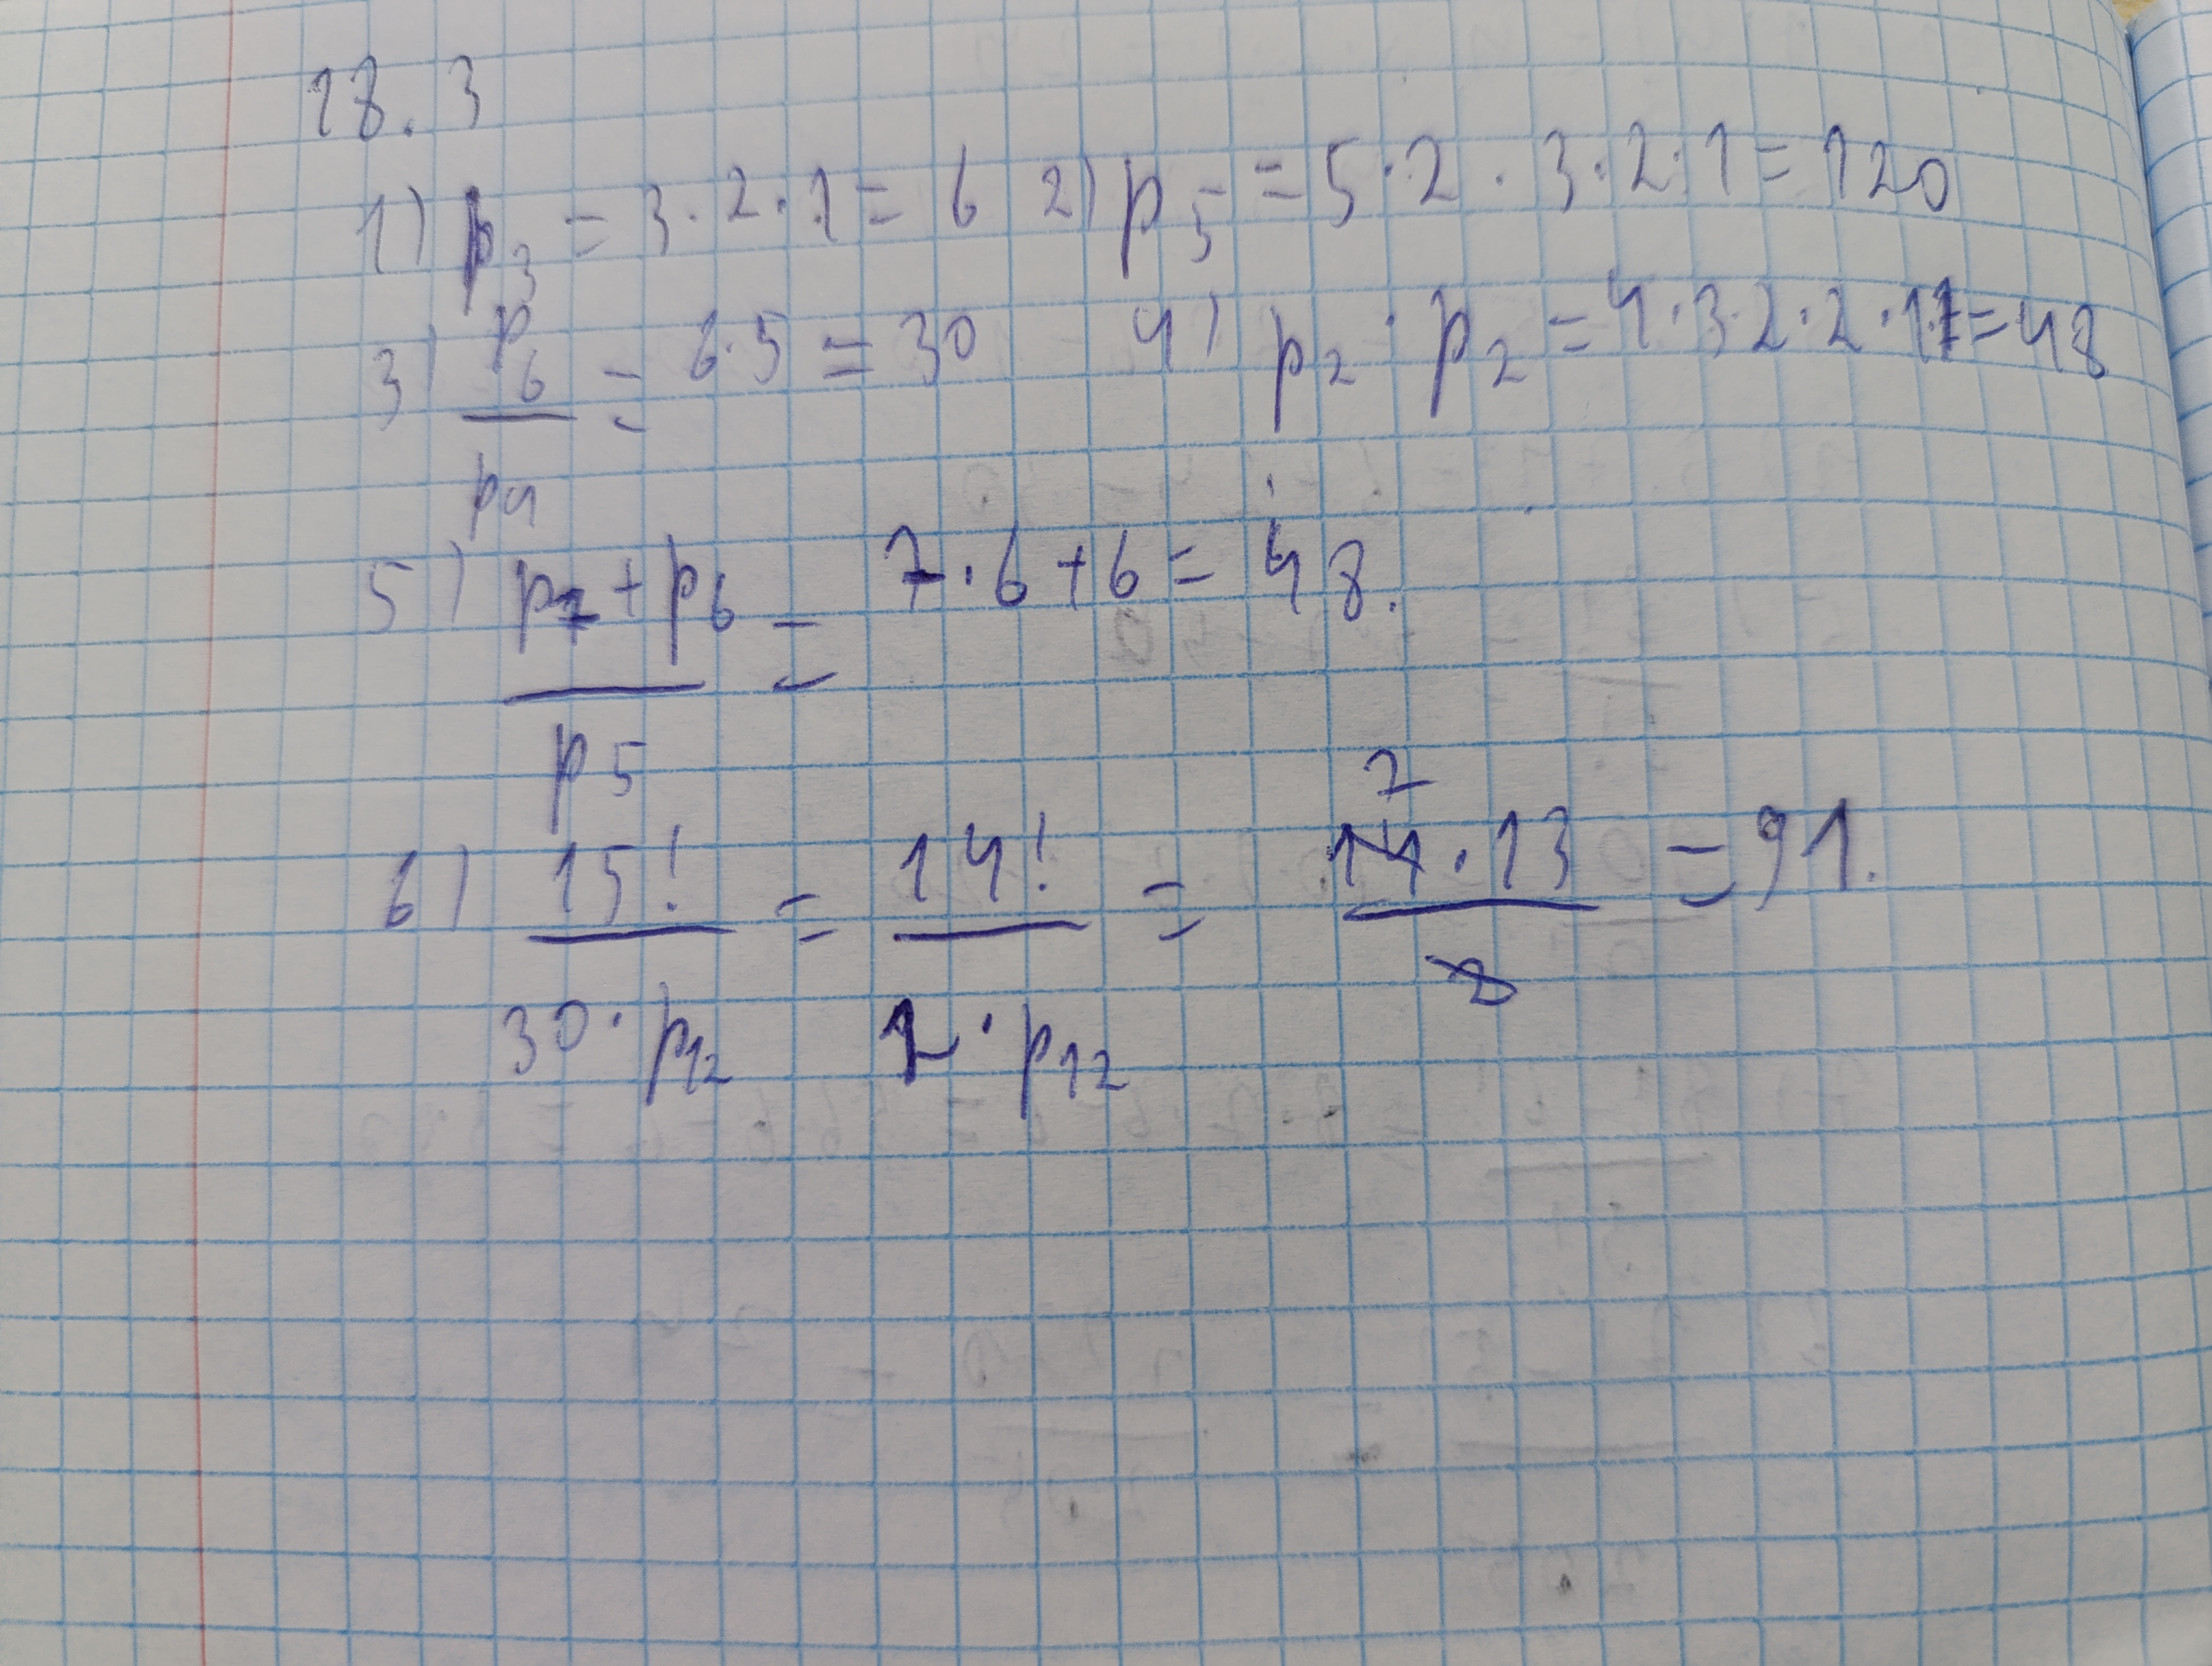 18.3
1) p₃ = 3·2·1 = 6 2) p₅ = 5·2·3·2·1 = 120
3) p₆/p₄ = 6·5 = 30 4) p₂·p₂ = 4·3·2·2·1·1 = 48
5) (p₇+p₆)/p₅ = 7·6+6 = 48.
6) 15!/(30·p₁₂) = 14!/(2·p₁₂) = 14·13/2 = 91.
7